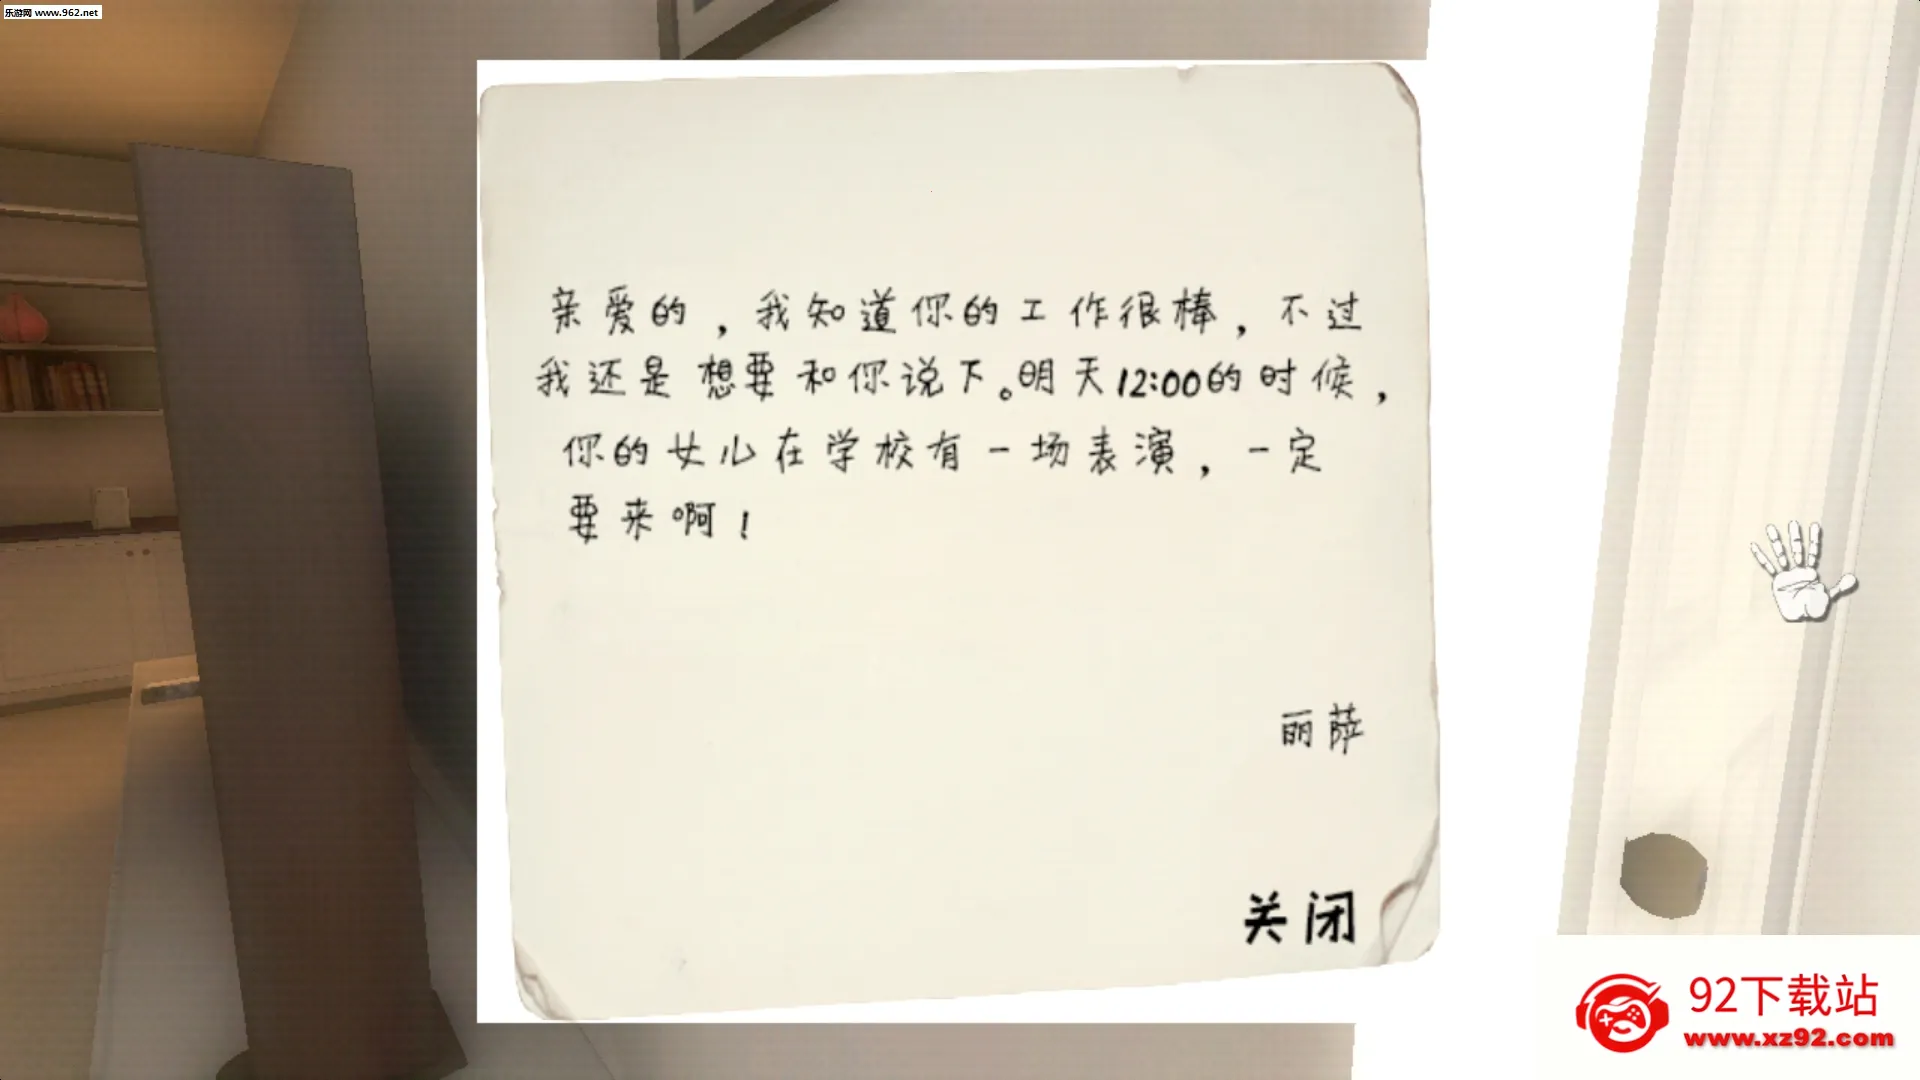 乐游网 www.962.net
亲爱的，我知道你的工作很棒，不过
我还是想要和你说下。明天12:00的时候，
你的女儿在学校有一场表演，一定
要来啊！
丽萨
关闭
92下载站
www.xz92.com